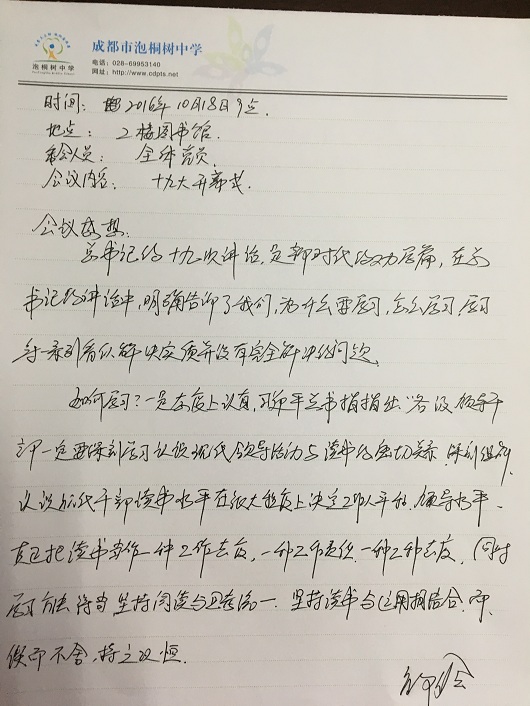 成都市泡桐树中学
电话：028-69953140
网址：http://www.cdpts.net
泡桐树中学
时间：2016年10月18日9点.
地点：2楼图书馆.
会人员：全体党员.
会议内容：十九大开幕式.
会议感想：
总书记的十九次讲话,是新时代的动员篇,在总
书记的讲话中,明确告诉了我们,为什么要学习,怎么学习,学习
看似解决实质并没有完全解决的问题.
如何学习?一是态度上认真,习近平总书指指出:"各级领导干
部一定要深刻学习认识现代领导活动与读书的密切关系,深刻
认识现代干部读书水平在很大程度上决定工作水平和领导水平.
真正把读书当作一种工作态度,一种工作责任,一种工作态度,同时
学习方法得当坚持阅读与思考统一.坚持读书与运用相结合,
锲而不舍,持之以恒.